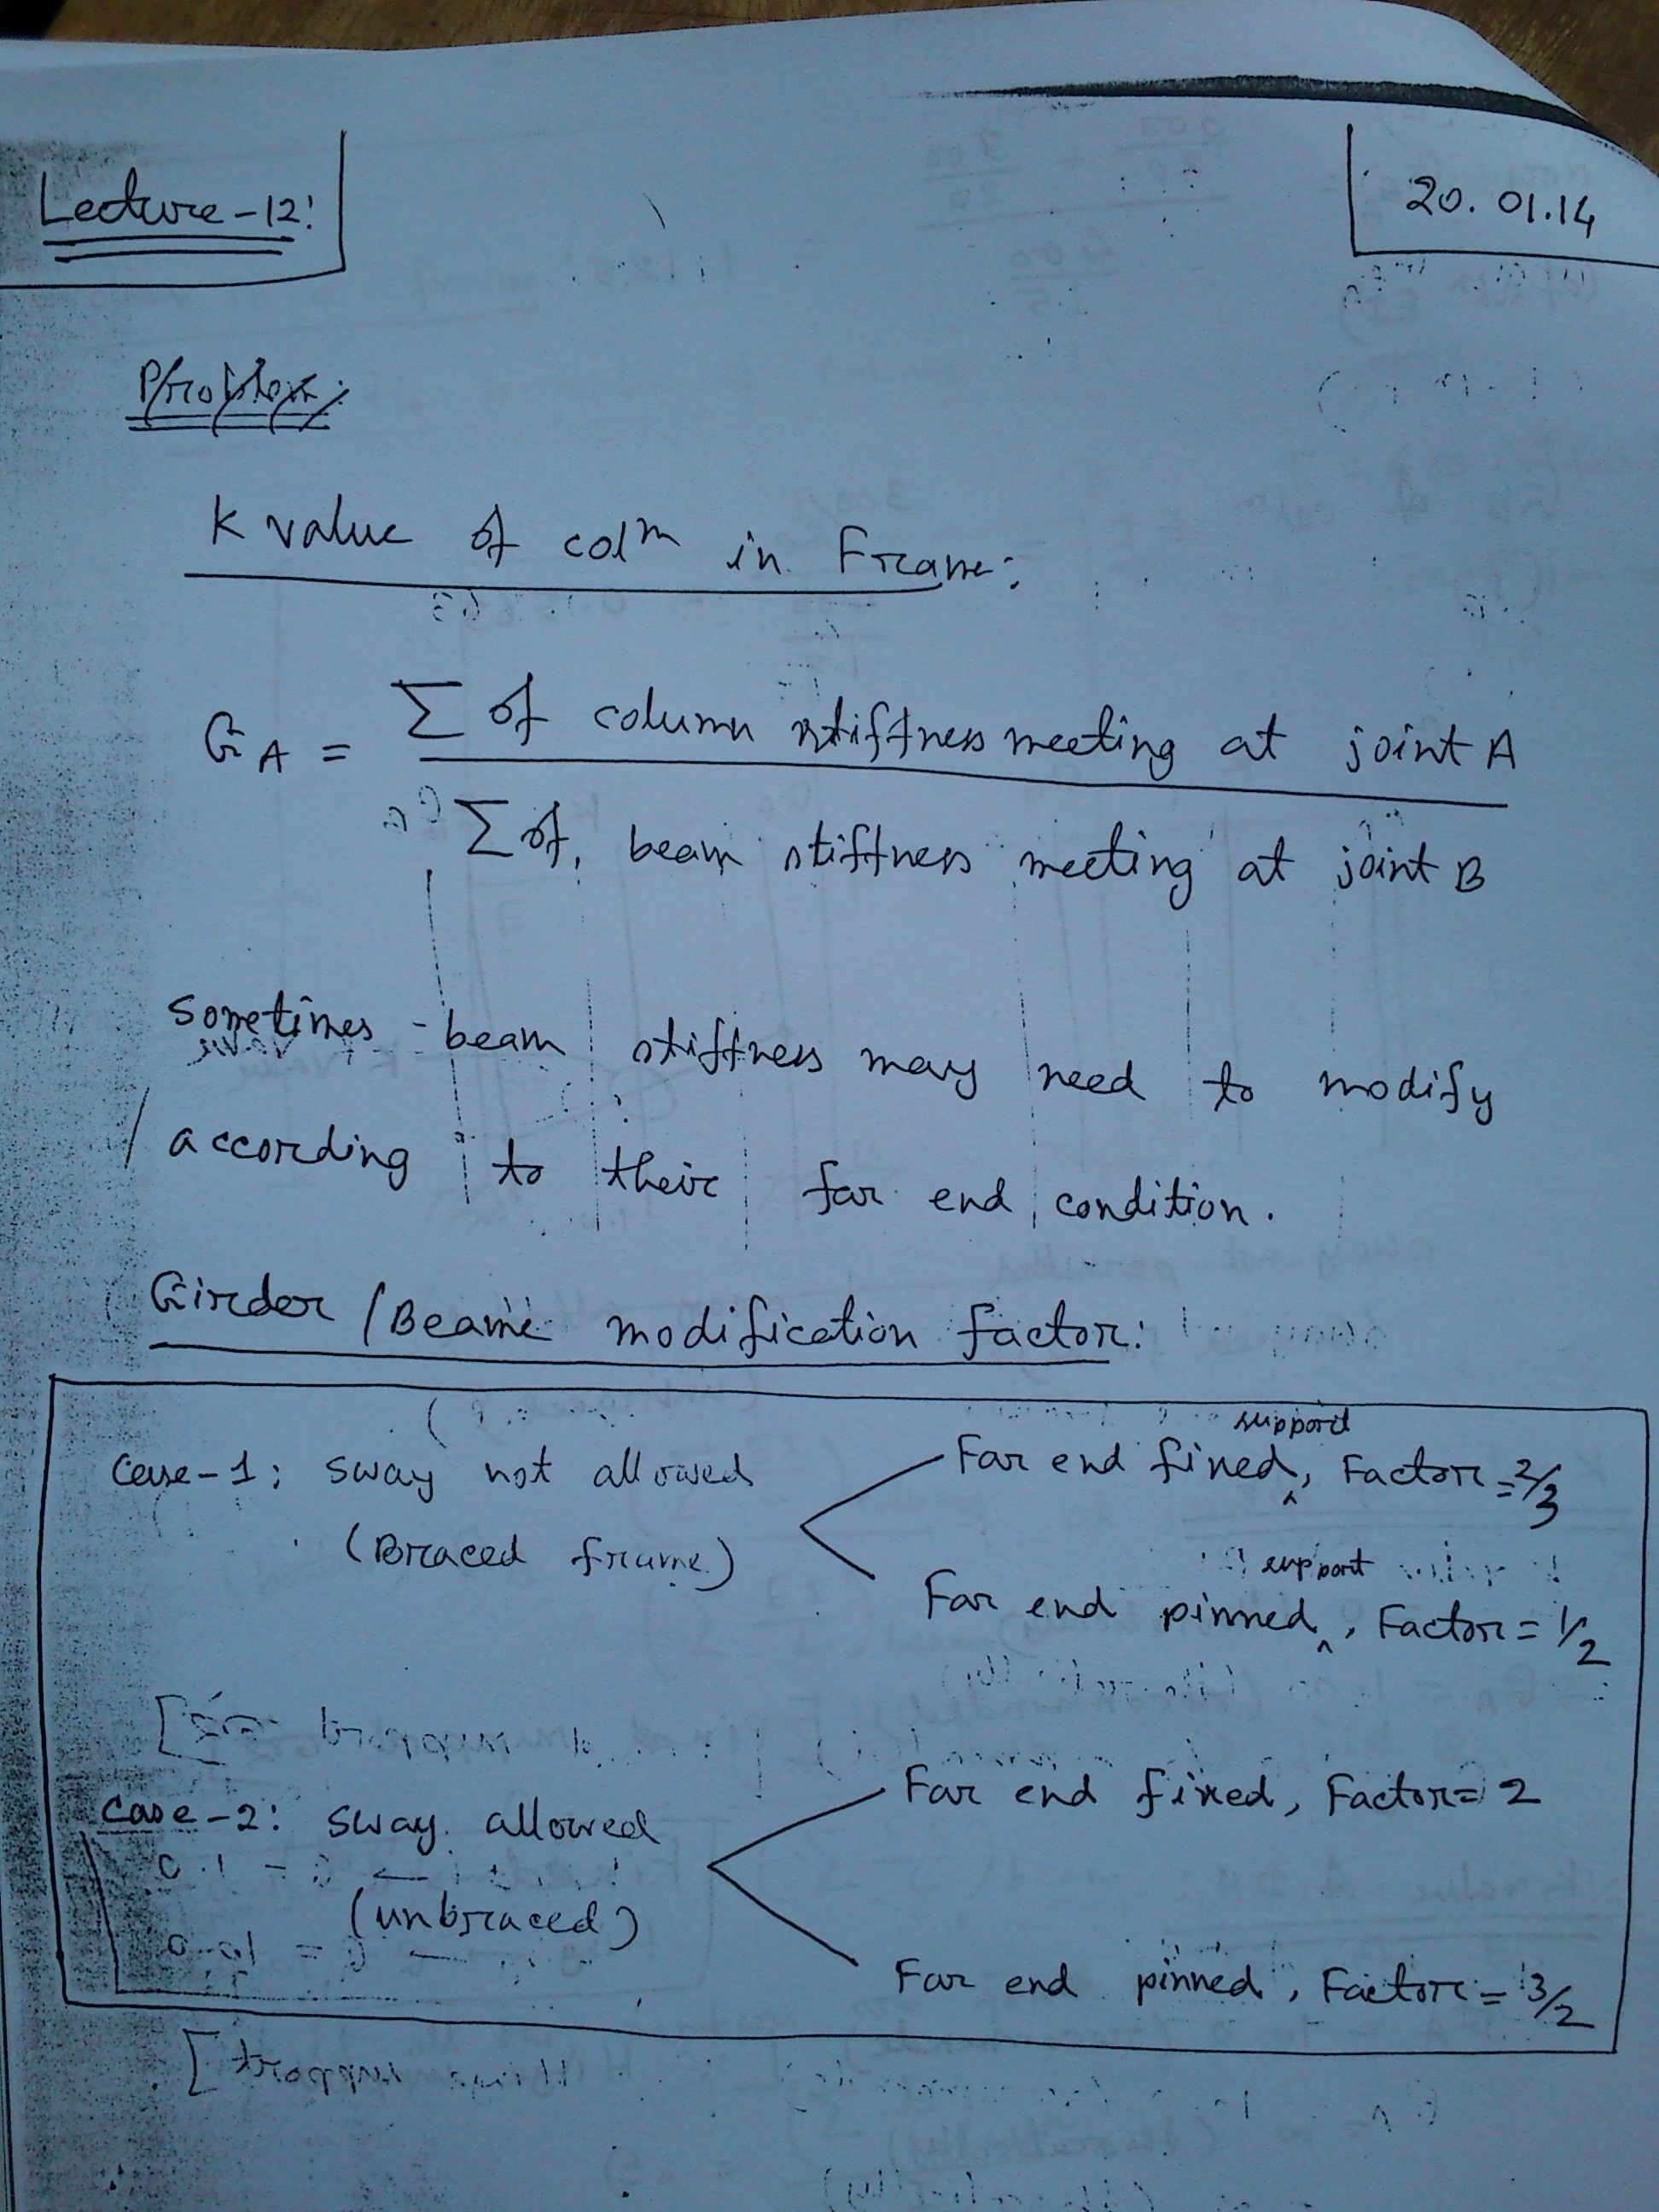 Lecture-12:
20.01.14
Problem:
K value of colm in Frame:
GA = Σ of column stiffness meeting at joint A
Σ of beam stiffness meeting at joint B
Sometimes beam stiffness may need to modify
according to their far end condition.
Girder / Beam modification factor:
Case-1: sway not allowed
(Braced frame)
Far end fixed support, Factor = 2/3
Far end pinned support, Factor = 1/2
Case-2: sway allowed
(unbraced)
Far end fixed, Factor = 2
Far end pinned, Factor = 3/2